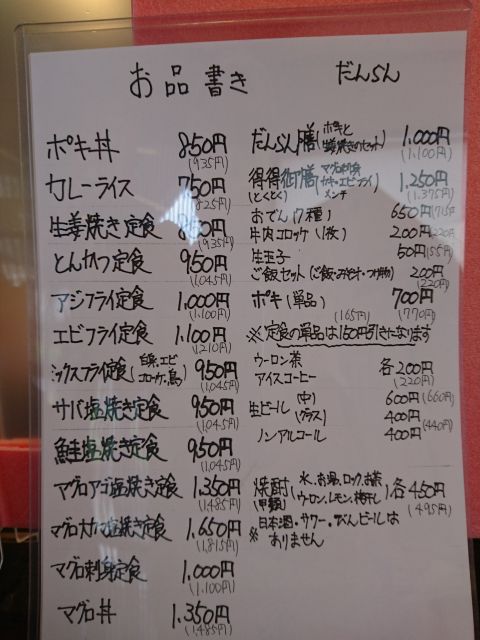 お品書き だんらん
ポキ丼 850円
(935円)
カレーライス 750円
(825円)
生姜焼き定食 850円
(935円)
とんかつ定食 950円
(1,045円)
アジフライ定食 1,000円
(1,100円)
エビフライ定食 1,100円
(1,210円)
ミックスフライ定食 コロッケ、 950円
(1,045円)
サバ塩焼き定食 950円
(1,045円)
鮭塩焼き定食 950円
(1,045円)
マグロアゴ塩焼き定食 1,350円
(1,485円)
マグロカマ塩焼き定食 1,650円
(1,815円)
マグロ刺身定食 1,000円
(1,100円)
マグロ丼 1,350円
(1,485円)
だんらん膳(ポキと
生姜焼きのセット) 1,000円
(1,100円)
得得御膳(マグロ刺身
(とくとく) カキ・エビフライ) 1,250円
メンチ (1,375円)
おでん(7種) 650円(715円)
牛肉コロッケ(1枚) 200円(220円)
生玉子 50円(55円)
ご飯セット(ご飯・みそ汁・つけ物) 200円
(220円)
ポキ(単品) 700円
(165円) (770円)
※定食の単品は150円引きになります
ウーロン茶 各200円
アイスコーヒー (220円)
生ビール(中) 600円(660円)
(グラス) 400円
ノンアルコール 400円(440円)
焼酎(水、お湯、ロック、お茶
(甲類) ウーロン、レモン、梅干し) 各450円
(495円)
※日本酒・サワー・びんビールは
ありません